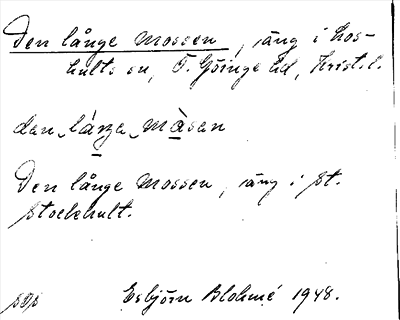 Den långe mossen, äng i Los-
hults sn, Ö. Göinge hd, Krist. l.
dan långa måsan
Den långe mossen, äng i st.
Stockhult.
Esbjörn Blohmé 1948.